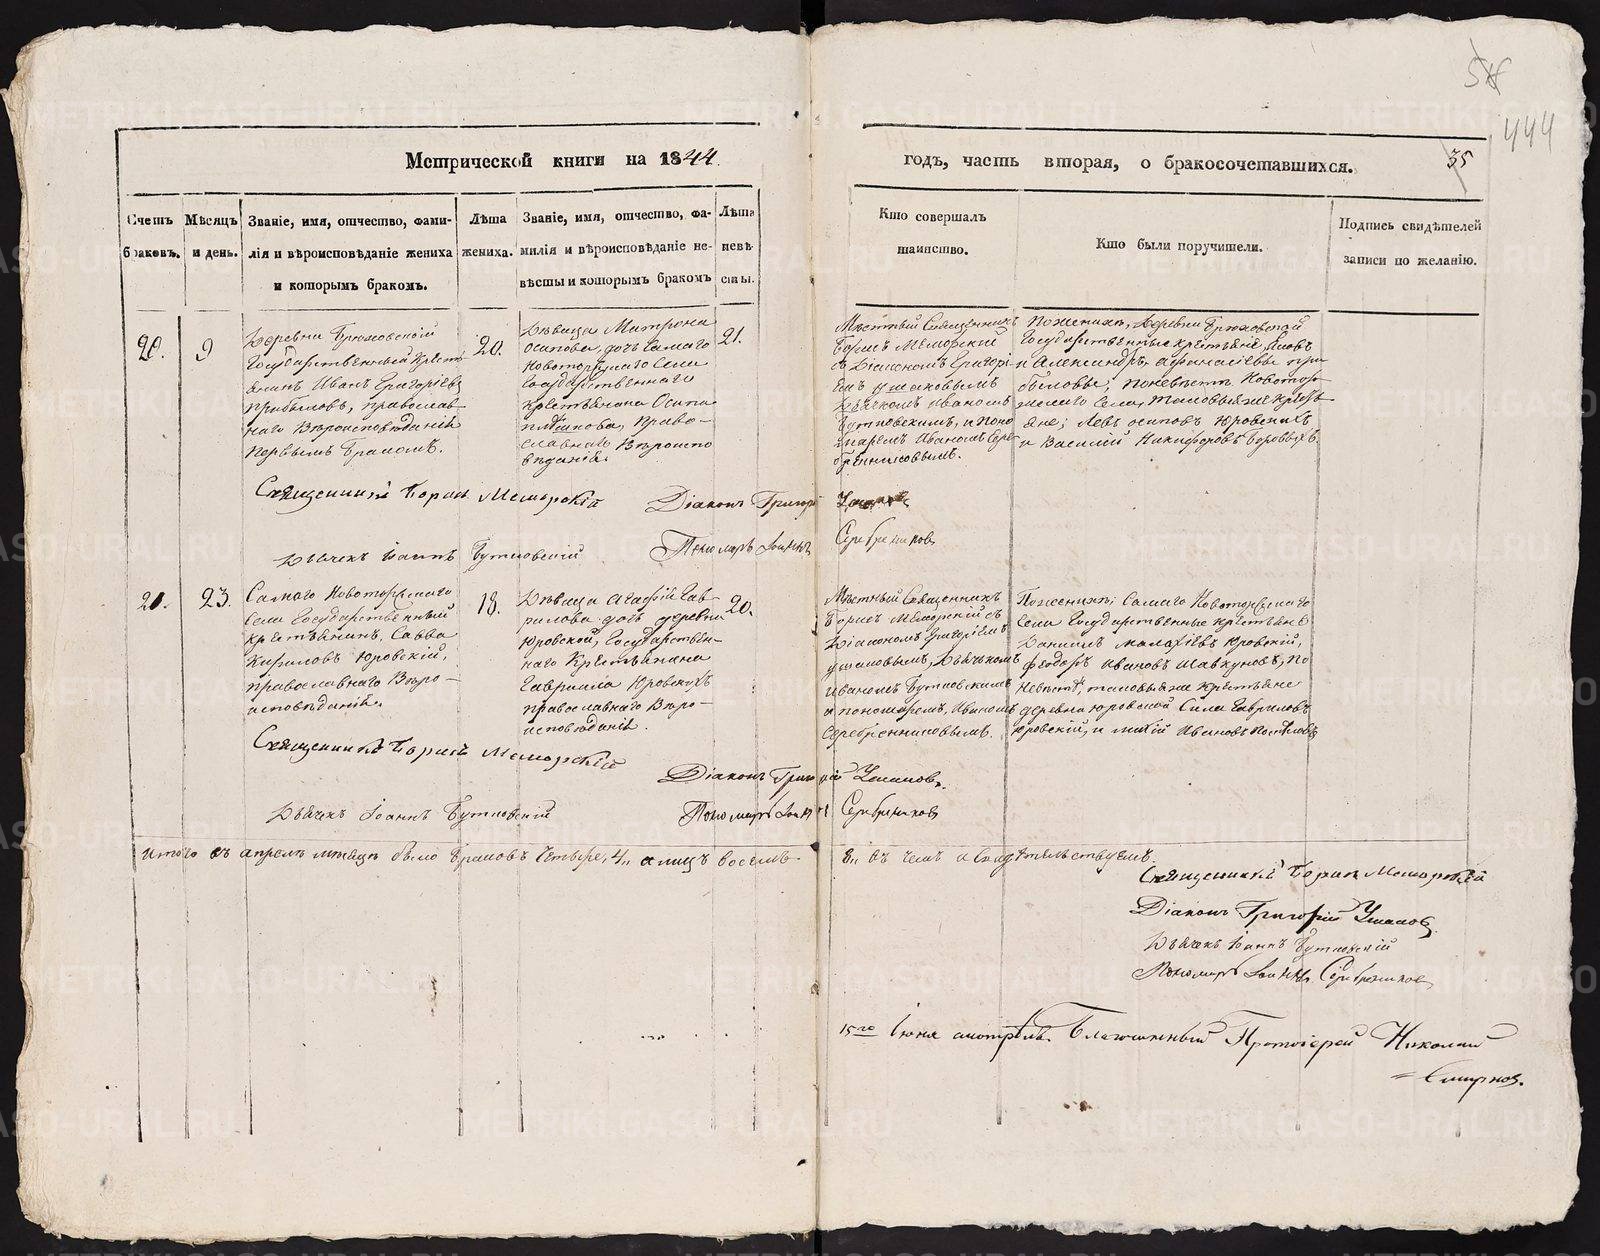 Метрической книги на 1844
годъ, часть вторая, о бракосочетавшихся.
35
444
Счетъ браковъ.
Мѣсяцъ и день.
Званіе, имя, отчество, фамилія и вѣроисповѣданіе жениха и которымъ бракомъ.
Лѣта жениха.
Званіе, имя, отчество, фамилія и вѣроисповѣданіе невѣсты и которымъ бракомъ
Лѣта невѣсты.
Кто совершалъ таинство.
Кто были поручители.
Подпись свидѣтелей записи по желанію.
20.
9
Деревни Брюховской
Государственный Кресть-
янинъ Иванъ Григоріевъ
Прибыловъ, православ-
наго Вѣроисповѣданія
первымъ бракомъ.
20.
Дѣвица Матрона
Осипова, дочь самаго
Новоторжскаго Села
Государственнаго
крестьянина Осипа
Право-
славнаго Вѣроиспо
вѣданія.
21.
Мѣстный Священникъ
Борисъ Меморскій
съ Діакономъ Григорі-
емъ Ушаковымъ
Дьячкомъ Иваномъ
Бутновскимъ, и Поно
маремъ Иваномъ Сере-
бренниковымъ.
По женихѣ, Деревни Брюховской
Государственные крестьяне, Яковъ
и Александръ Афанасіевы При-
быловы; по невѣстѣ Новотор-
жскаго Села, таковые же кресть-
яне; Левъ Осиповъ Юровскихъ
и Василій Никифоровъ Боровыхъ.
Священникъ Борисъ Меморскій Діаконъ Григорій Ушаковъ
Дьячекъ Іоаннъ Бутновскій Пономарь Іоаннъ Серебрениковъ
21.
23.
Самаго Новоторжскаго
Села Государственный
крестьянинъ, Савва
Кириловъ Юровскій,
православнаго Вѣро-
исповѣданія.
18.
Дѣвица Агафія Гав-
рилова дочь деревни
Юровской, Государствен-
наго Крестьянина
Гавриила Юровскихъ
православнаго Вѣро-
исповѣданія.
20.
Мѣстный Священникъ
Борисъ Меморскій съ
Діакономъ Григоріемъ
Ушаковымъ, Дьячкомъ
Иваномъ Бутновскимъ
и пономаремъ, Иваномъ
Серебренниковымъ.
По женихѣ; Самаго Новоторжскаго
Села Государственные крестьяне
Даніилъ Малахіевъ Юровскій,
Феодоръ Ивановъ Шавкуновъ, по
невѣстѣ, таковые же крестьяне
деревни Юровской Сила Гавриловъ
Юровскій, и Ивановъ
Священникъ Борисъ Меморскій
Діаконъ Григорій Ушаковъ.
Дьячекъ Іоаннъ Бутновскій Пономарь Іоаннъ Серебрениковъ
Итого въ апрелѣ мѣсяцѣ было браковъ четыре, 4,, а лицъ восемь. 8,, въ чемъ и свидѣтельствуемъ.
Священникъ Борисъ Меморскій
Діаконъ Григорій Ушаковъ
Дьячекъ Іоаннъ Бутновскій
Пономарь Іоаннъ Серебрениковъ
15го Іюня смотрѣлъ. Благочинный Протоіерей Николай
Смирновъ.
METRIKI.GASO-URAL.RU